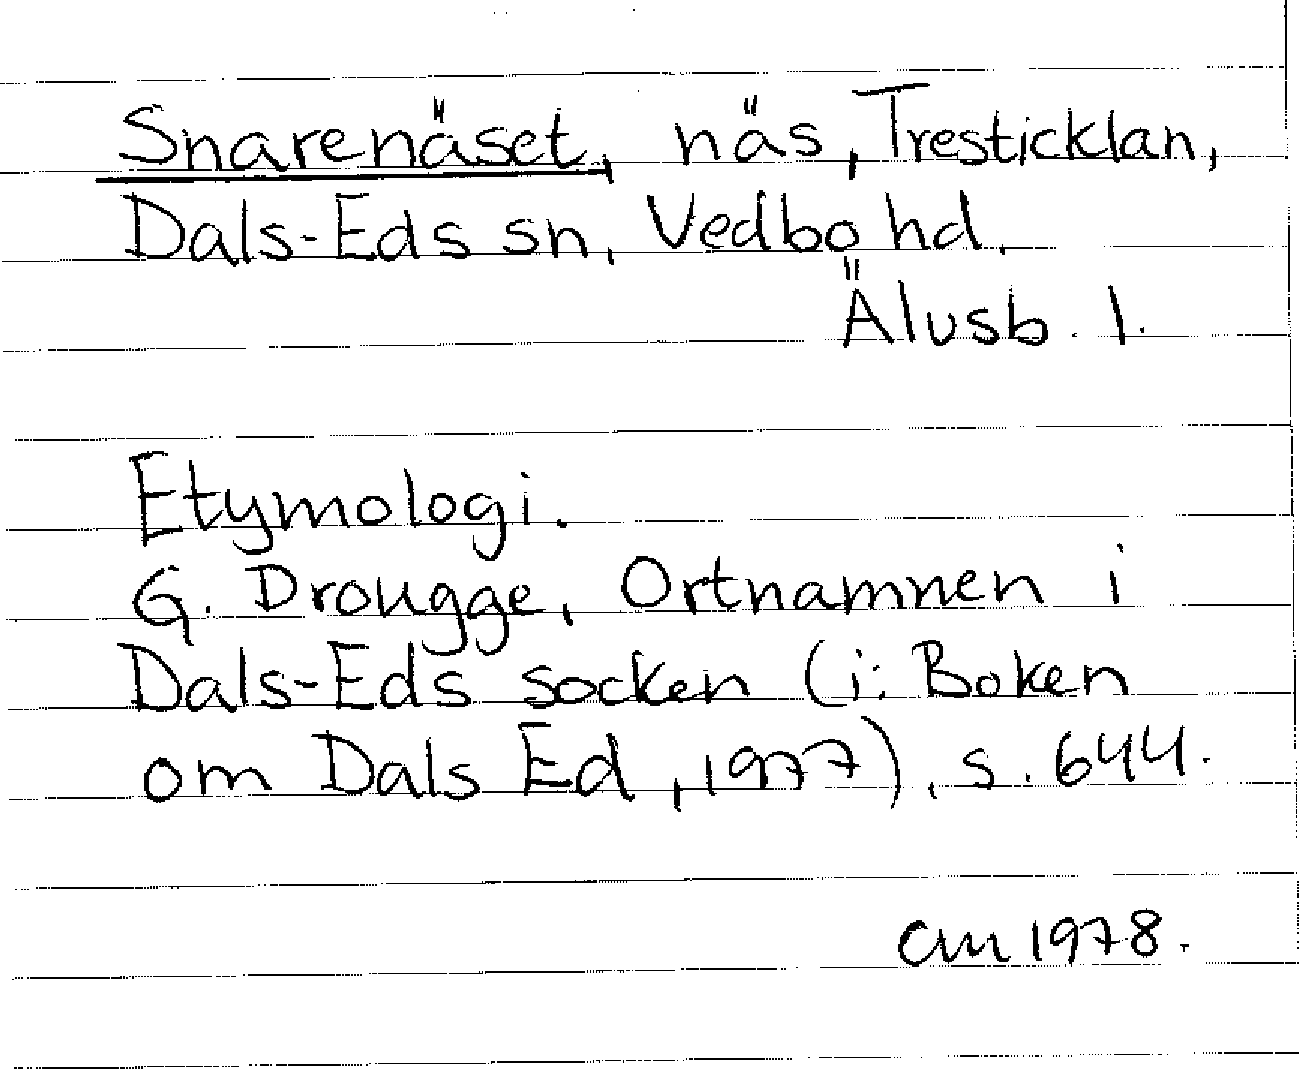 Snarenäset, näs, Tresticklan,
Dals-Eds sn, Vedbo hd,
Älvsb. l.
Etymologi.
G. Drougge, Ortnamnen i
Dals-Eds socken (i: Boken
om Dals Ed, 1977), s. 644.
CM 1978.